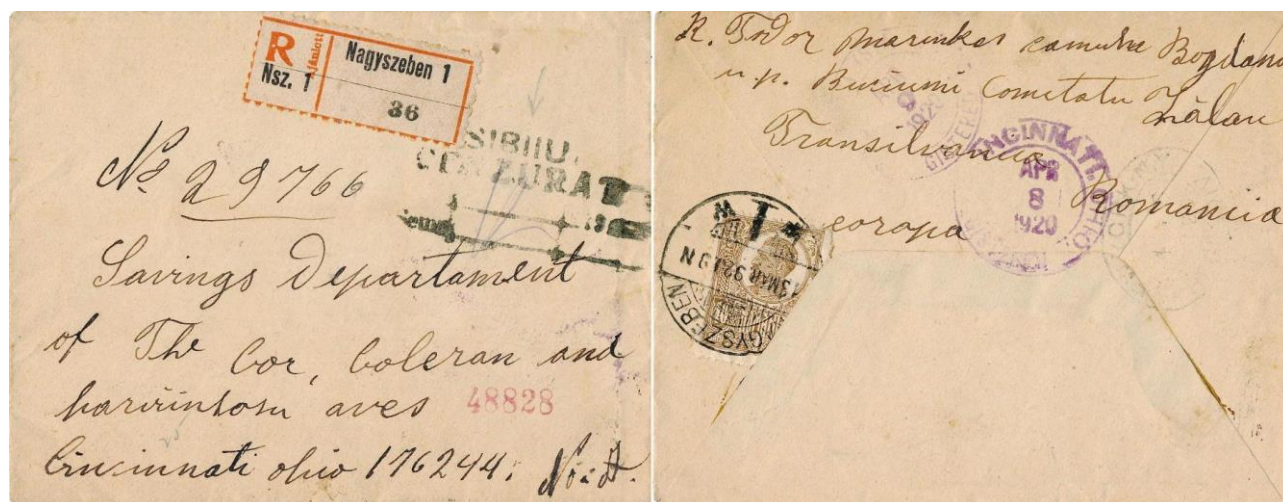 R Ajánlott Nagyszeben 1
Nsz. 1 36
SIBIIU.
CENZURAT
No 29766
Savings Departament
of The Cor, Coleran and
aves
48828
Cincinnati ohio 176244.
R. Todor Marinkas comuhe Bogdana
u.p. Buciumi Comitatu Zălau
Transilvania
Romania
europa
CINCINNATI, OHIO
APR
8
1920
GYSZEBEN
13 MAR 920 9 N